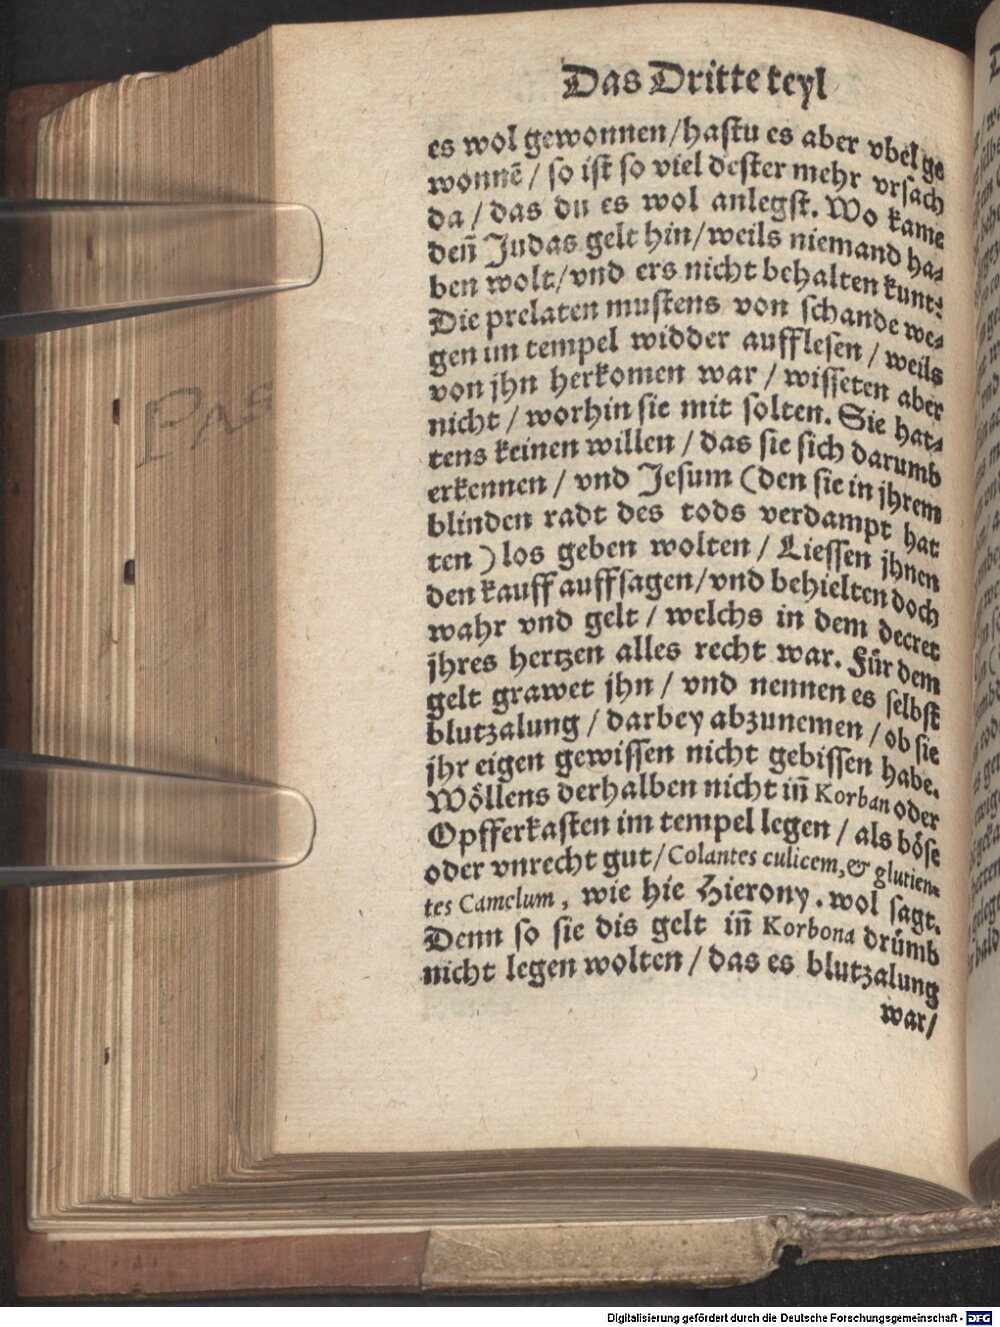 Das Dritte teyl
es wol gewonnen/hastu es aber vbel ge
wonnē / so ist so viel dester mehr vrsach
da / das du es wol anlegst. Wo kame
deñ Judas gelt hin/weils niemand ha⸗
ben wolt/vnd ers nicht behalten kunt:
Die prelaten mustens von schande we⸗
gen im tempel widder aufflesen / weils
von jhn herkomen war / wisseten aber
nicht / worhin sie mit solten. Sie hat⸗
tens keinen willen / das sie sich darumb
erkennen / vnd Jesum (den sie in jhrem
blinden radt des tods verdampt hat
ten) los geben wolten / Liessen jhnen
den kauff auffsagen/vnd behielten doch
wahr vnd gelt / welchs in dem decret
jhres hertzen alles recht war. Für dem
gelt grawet jhn / vnd nennen es selbst
blutzalung / darbey abzunemen / ob sie
jhr eigen gewissen nicht gebissen habe.
Wöllens derhalben nicht iñ Korban oder
Opfferkasten im tempel legen / als böse
oder vnrecht gut/Colantes culicem,& glutien⸗
tes Camelum, wie hie Hierony. wol sagt.
Denn so sie dis gelt iñ Korbona drümb
nicht legen wolten / das es blutzalung
war/
PAS
Digitalisierung gefördert durch die Deutsche Forschungsgemeinschaft - DFG